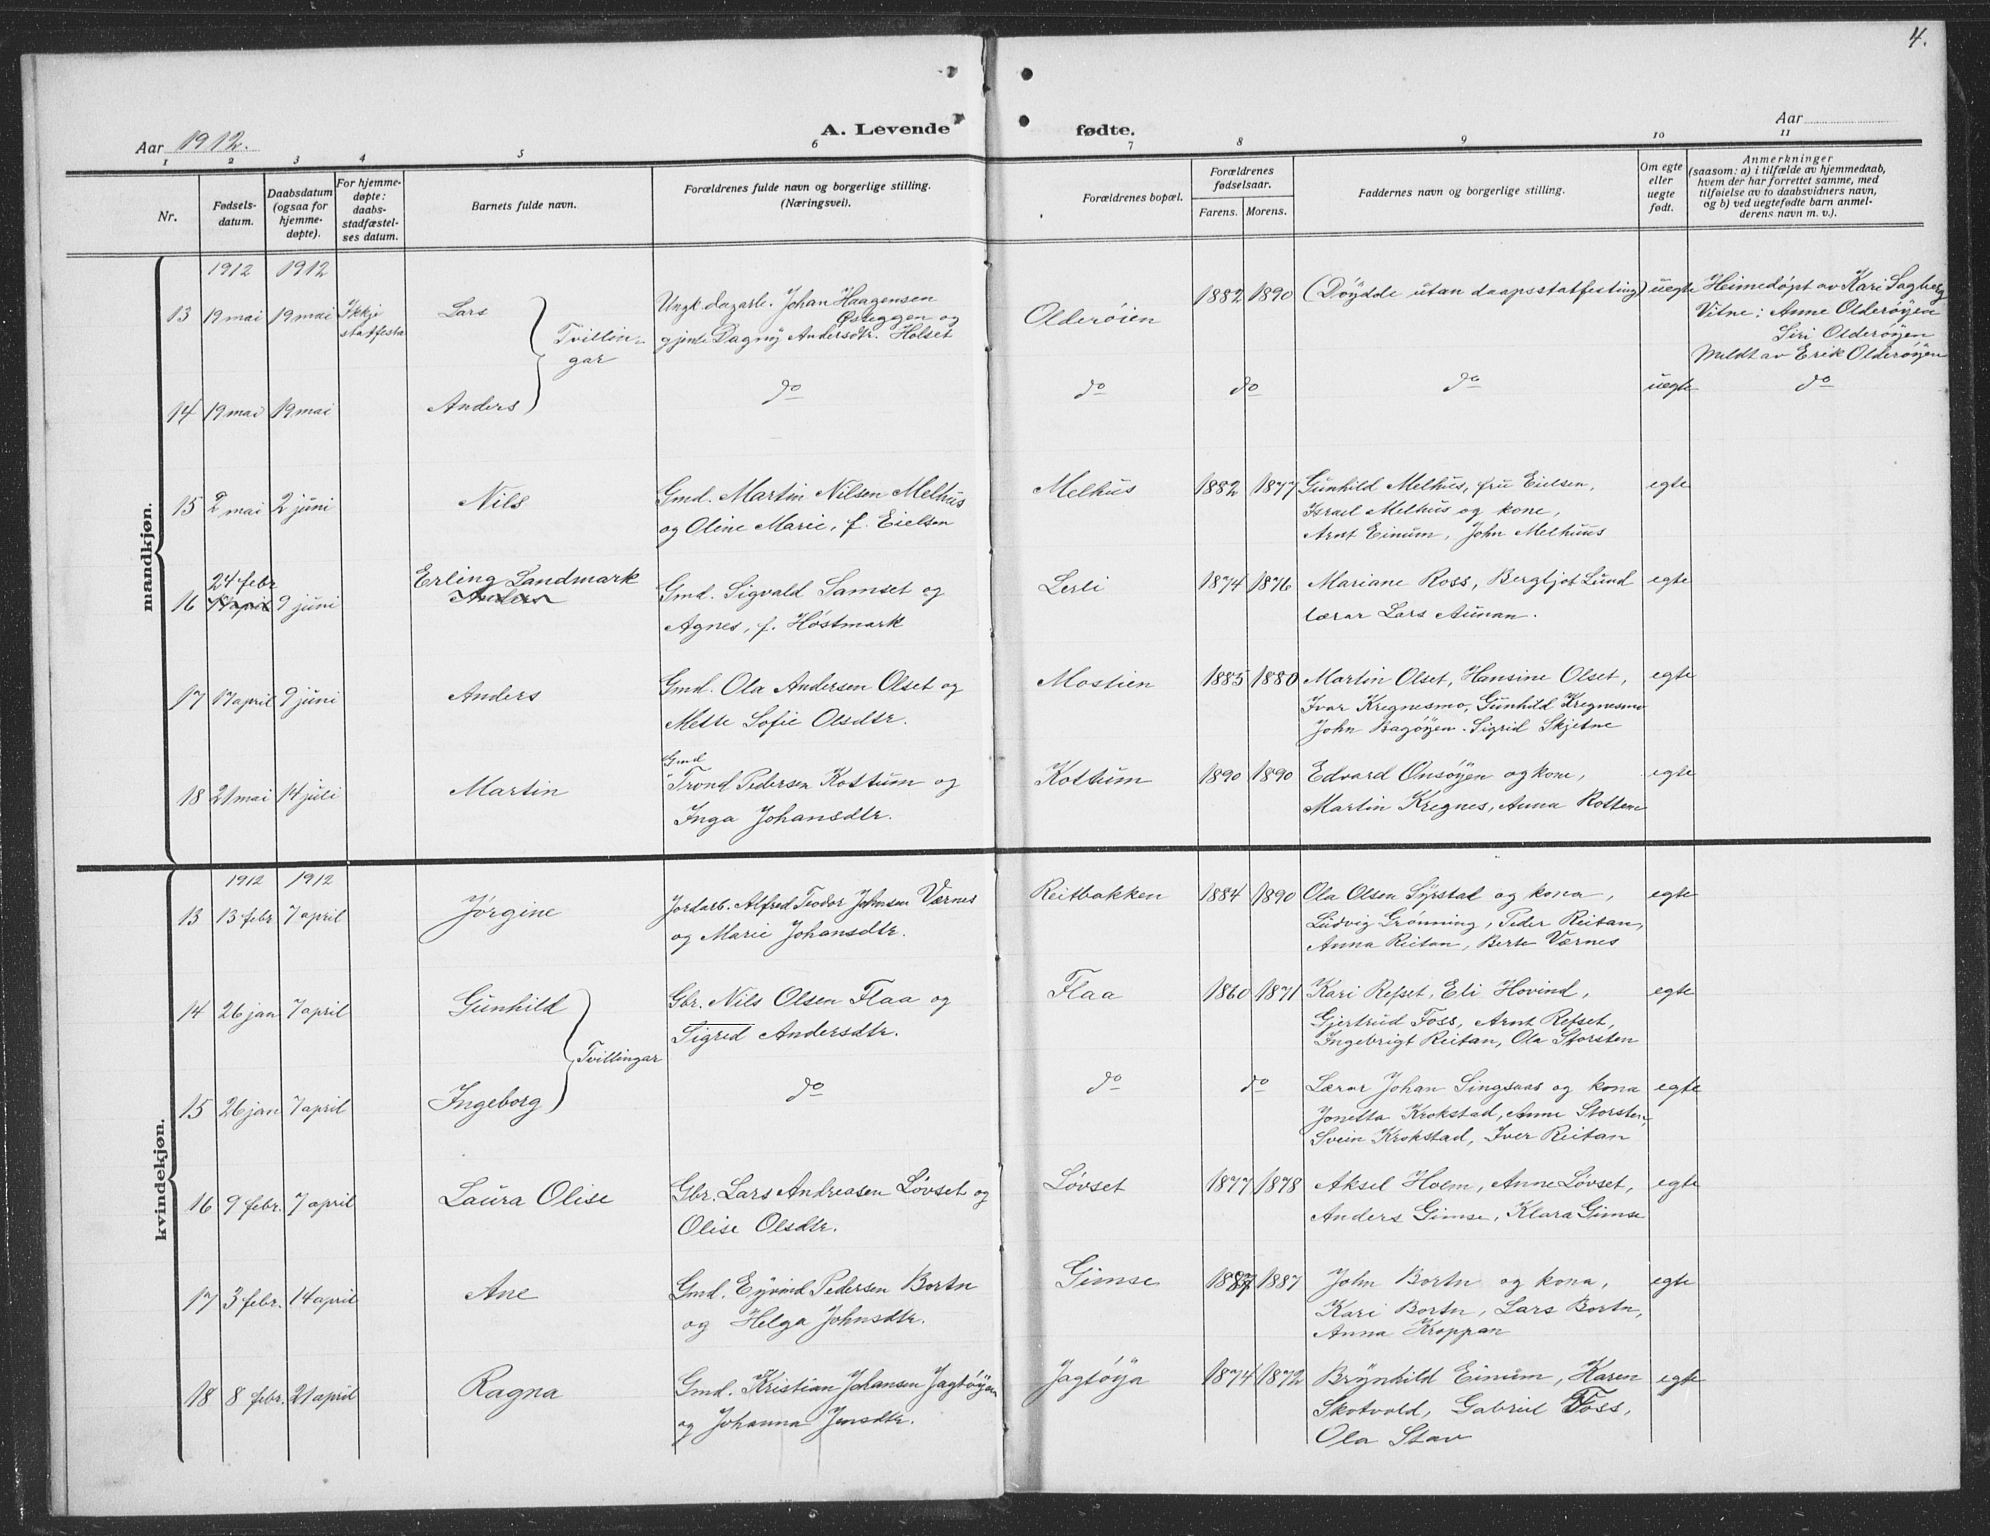 4.
Aar 1912.
A. Levende
fødte.
Aar
1 2 3 4 5 6 7 8 9 10 11
Nr.
Fødsels-
datum.
Daabsdatum
(ogsaa for
hjemme-
døpte).
For hjemme-
døpte:
daabs-
stadfæstel-
ses datum.
Barnets fulde navn.
Forældrenes fulde navn og borgerlige stilling.
(Næringsvei).
Forældrenes bopæl.
Forældrenes
fødselsaar.
Farens. Morens.
Faddernes navn og borgerlige stilling.
Om egte
eller
uegte
født.
Anmerkninger
(saasom: a) i tilfælde av hjemmedaab,
hvem der har forrettet samme, med
tilføielse av to daabsvidners navn,
og b) ved uegtefødte barn anmel-
derens navn m. v.).
mandkjøn.
1912 1912
13 19 mai 19 mai Ikkje
statfesta
Lars
Tvillin-
gar
Ungk. dagarb. Johan Haagensen
Øseggen og
gjente Dagny Andersdtr. Holset
Olderøien
1882 1890 (Døydde utan daapsstatfesting) uegte
Heimedøpt av Kari Sagberg
Vitne: Anne Olderøyen
Siri Olderøyen
Meldt av Erik Olderøyen
14 19 mai 19 mai Anders do do do do uegte do
15 2 mai 2 juni Nils
Gmd. Martin Nilsen Melhus
og Oline Marie, f. Eielsen
Melhus 1882 1877
Gunhild Melhus, fru Eielsen,
Israel Melhus og kone,
Arnt Einum, John Melhuus
egte
24 febr
16 17 april 9 juni
Erling Landmark
Anders
Gmd. Sigvald Samset og
Agnes, f. Høstmark
Lerli 1874 1876
Mariane Ross, Bergljot Lund
lærar Lars Aunan.
egte
17 17 april 9 juni Anders
Gmd. Ola Andersen Olset og
Mette Sofie Olsdtr.
Mostien 1885 1880
Martin Olset, Hansine Olset,
Ivar Kregnesmo, Gunhild Kregnesmo
John Bagøyen. Sigrid Skjetne
egte
18 21 mai 14 juli Martin
Gmd
Trond Pedersen Kottum og
Inga Johansdtr.
Kottum 1890 1890
Edvard Onsøyen og kone,
Martin Kregnes, Anna Rottene
egte
kvindekjøn.
1912 1912
13 13 febr 7 april Jørgine
Jordarb. Alfred Teodor Johnsen Værnes
og Marie Johansdtr.
Reitbakken 1884 1890
Ola Olsen Syrstad og kona,
Ludvig Grønning, Peder Reitan,
Anna Reitan, Berte Værnes
egte
14 26 jan 7 april Gunhild
Tvillingar
Gbr. Nils Olsen Flaa og
Sigrid Andersdtr.
Flaa 1860 1871
Kari Refset, Eli Hovind,
Gjertrud Foss, Arnt Refset,
Ingebrigt Reitan, Ola Storsten
egte
15 26 jan 7 april Ingeborg do do do
Lærar Johan Singsaas og kona
Jonetta Krokstad, Anne Storsten,
Svein Krokstad, Iver Reitan
egte
16 9 febr. 7 april Laura Olise
Gbr. Lars Andreasen Løvset og
Olise Olsdtr.
Løvset 1877 1878
Aksel Holm, Anne Løvset,
Anders Gimse, Klara Gimse
egte
17 3 febr. 14 april Ane
Gmd. Eyvind Pedersen Bortn
og Helga Johnsdtr.
Gimse 1887 1887
John Bortn og kona,
Kari Bortn, Lars Bortn,
Anna Kroppan
egte
18 8 febr. 21 april Ragna
Gmd. Kristian Johansen Jagtøyen
og Johanna Jensdtr.
Jagtøya 1874 1872
Brynhild Einum, Karen
Skotvold, Gabriel Foss,
Ola Stav
egte